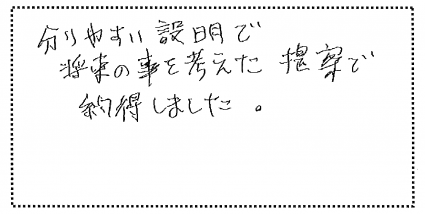 分りやすい説明で
将来の事を考えた提案で
納得しました。